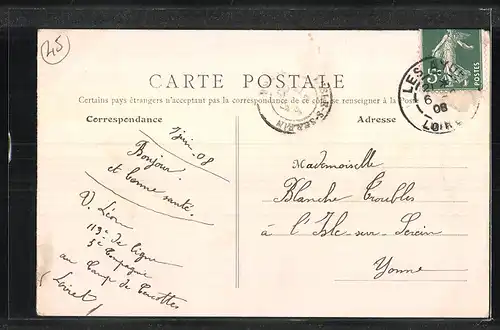 45
CARTE POSTALE
Certains pays étrangers n'acceptant pas la correspondance de ce côté, se renseigner à la Poste
Correspondance
Adresse
7 juin 08
Bonjour
et bonne santé.
V. Léon
113e de ligne
5e Compagnie
au Camp de Cercottes
(Loiret)
Mademoiselle
Blanche Troubles
à l'Isle-sur-Serein
Yonne
POSTES
08
LOIRET